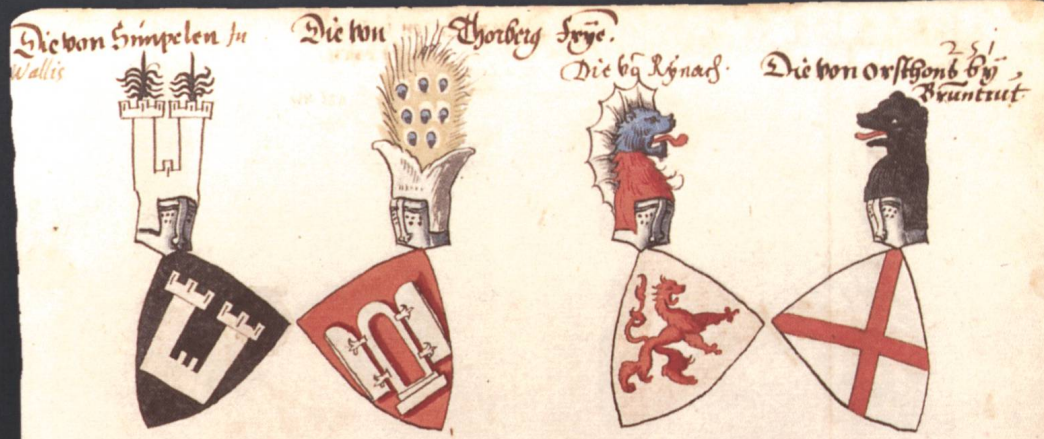 Die von Simpelen Jn
Wallis
Die von Thorberg Frye.
Die vo Rynach.
251
Die von orsthons by
Bruntrut